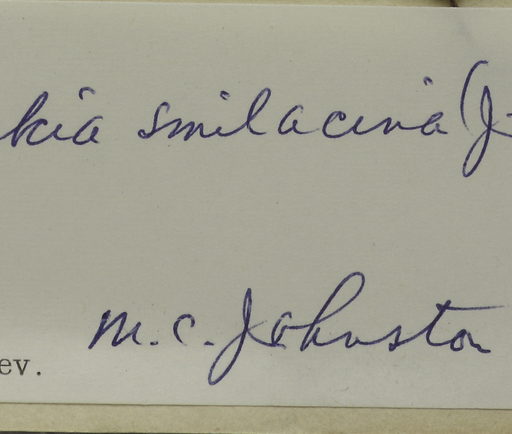 kia smilacina (J
M. C. Johnston
ev.